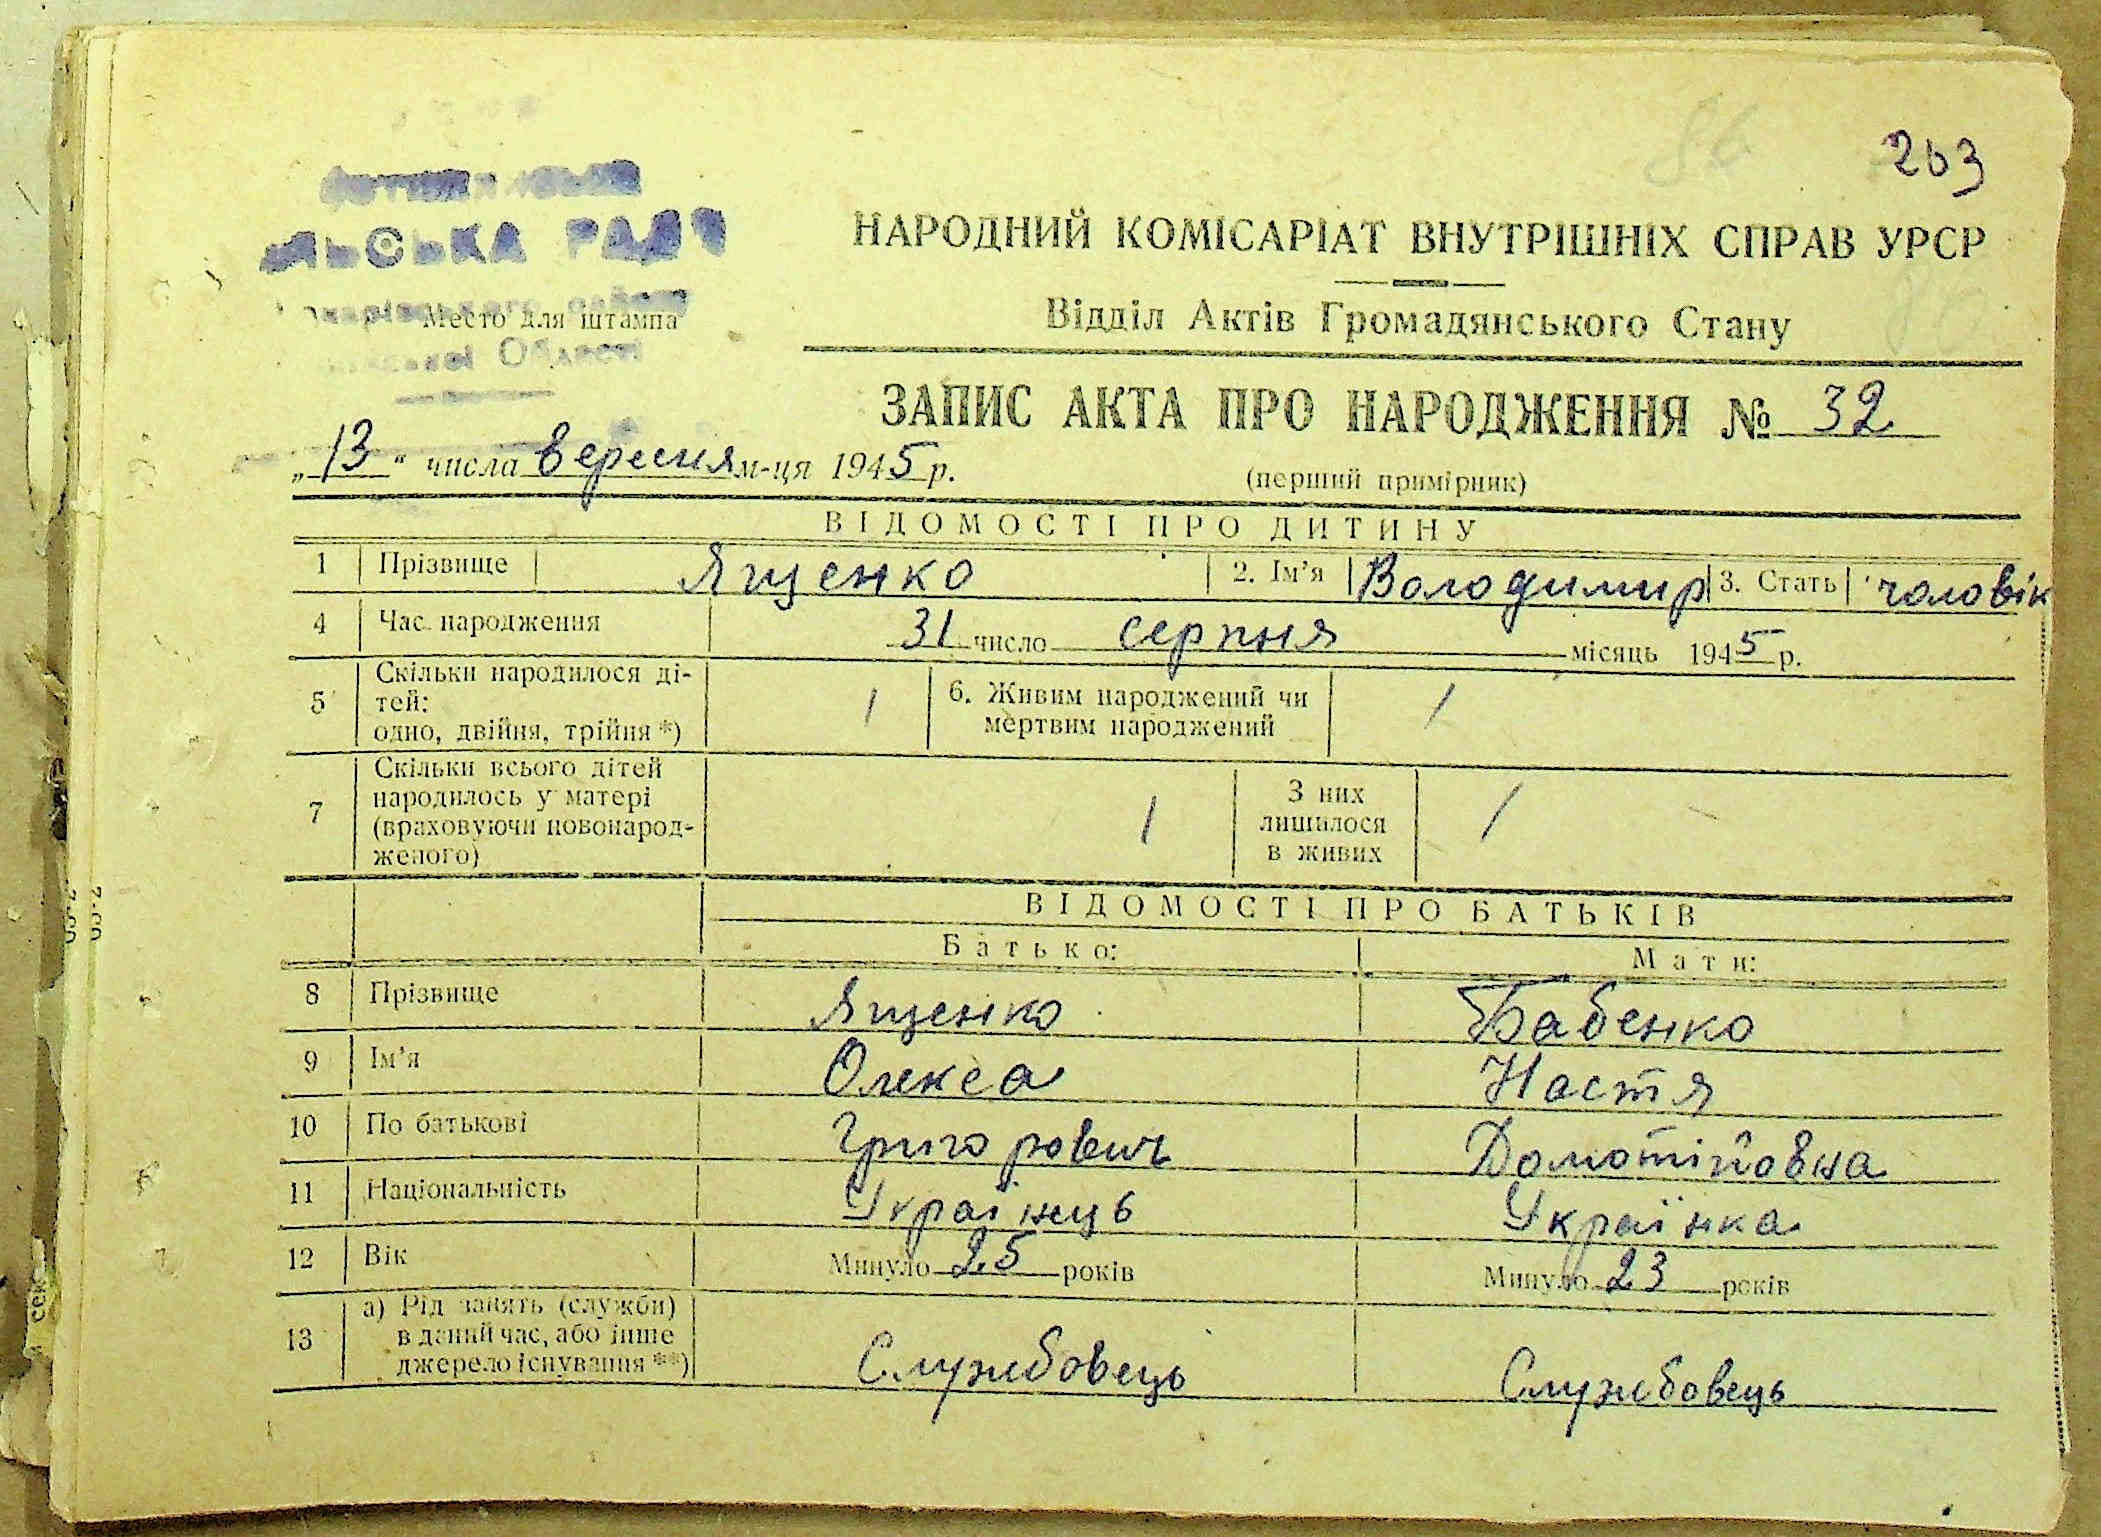 263
ЛЬСЬКА РАДА
НАРОДНИЙ КОМІСАРІАТ ВНУТРІШНІХ СПРАВ УРСР
Место для штампа
Області
Відділ Актів Громадянського Стану
ЗАПИС АКТА ПРО НАРОДЖЕННЯ № 32
„13“ числа вересня м-ця 1945 р.
(перший примірник)
ВІДОМОСТІ ПРО ДИТИНУ
1 Прізвище Ященко 2. Ім'я Володимир 3. Стать чоловік
4 Час народження 31 число серпня місяць 1945 р.
5 Скільки народилося ді-
тей:
одно, двійня, трійня *) 1 6. Живим народжений чи
мертвим народжений 1
7 Скільки всього дітей
народилось у матері
(враховуючи новонарод-
женого) 1 З них
лишилося
в живих 1
ВІДОМОСТІ ПРО БАТЬКІВ
Батько: Мати:
8 Прізвище Ященко Бабенко
9 Ім'я Олекса Настя
10 По батькові Григорович
11 Національність Українець Українка
12 Вік Минуло 25 років Минуло 23 років
13 а) Рід занять (служби)
в даний час, або інше
джерело існування **) Службовець Службовець